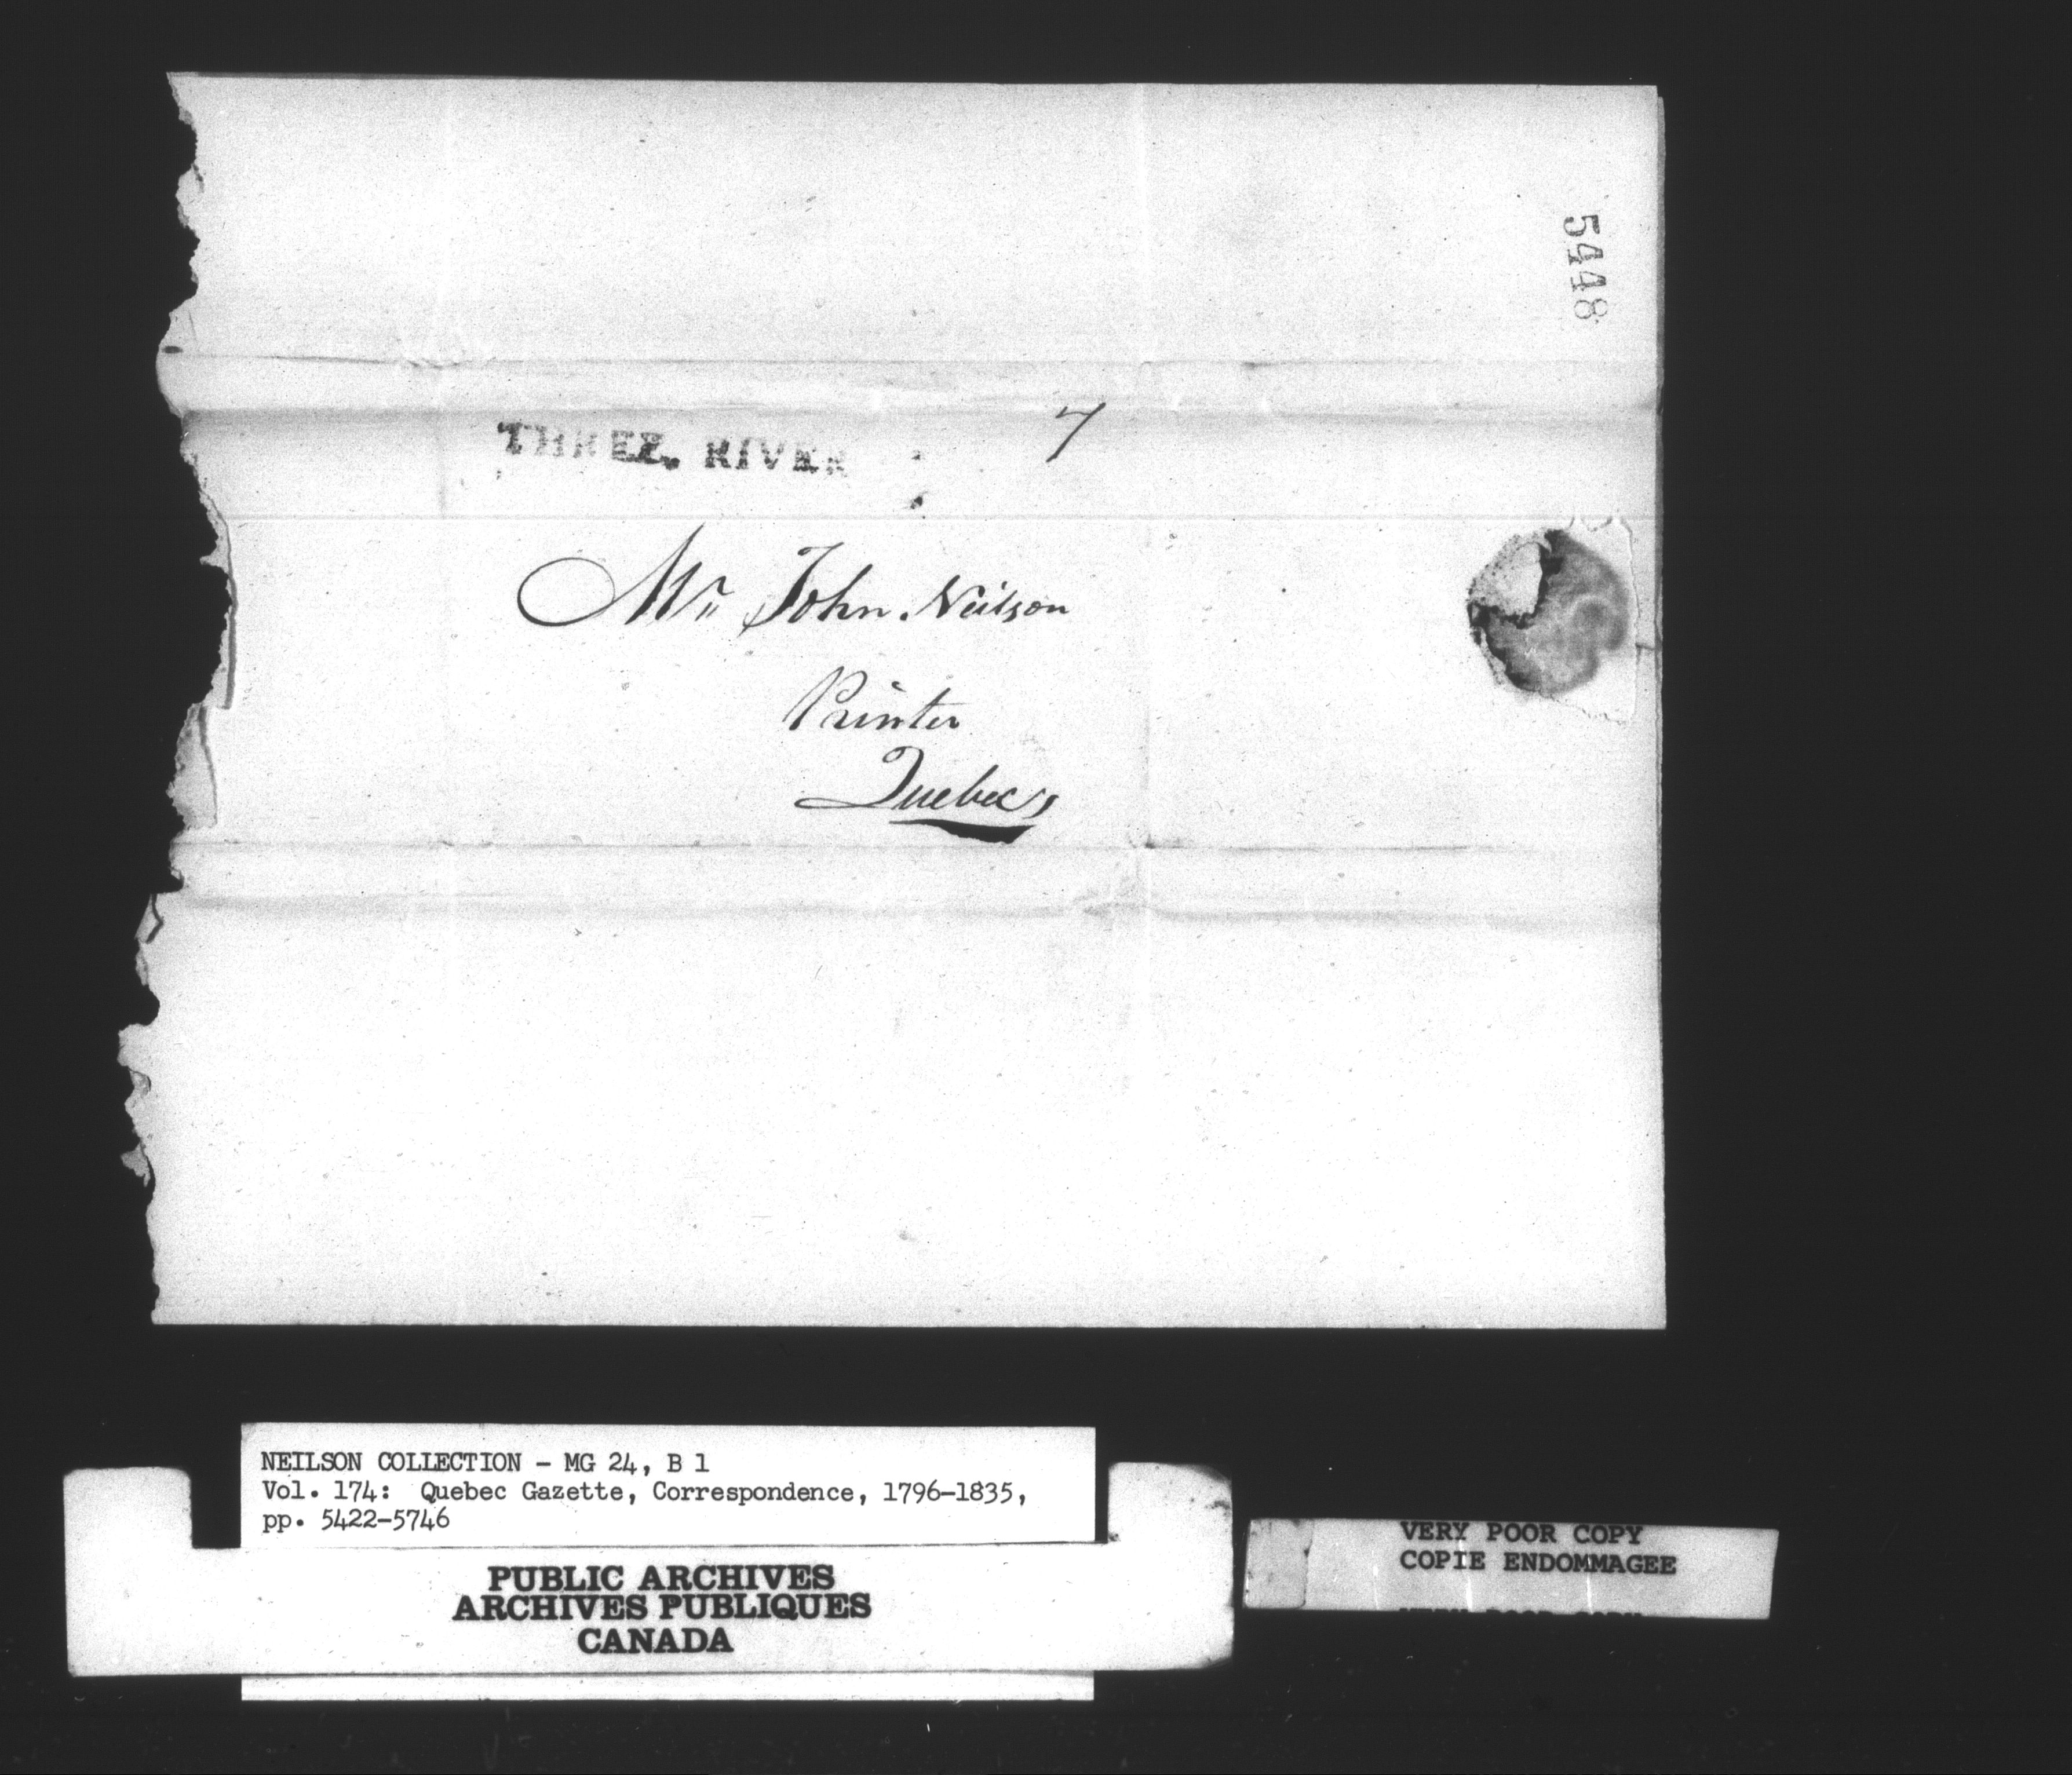 5448
THREE. RIVER
7
Mr John Neilson
Printer
Quebec,
NEILSON COLLECTION - MG 24, B 1
Vol. 174: Quebec Gazette, Correspondence, 1796-1835,
pp. 5422-5746
PUBLIC ARCHIVES
ARCHIVES PUBLIQUES
CANADA
VERY POOR COPY
COPIE ENDOMMAGEE
VERY POOR COPY